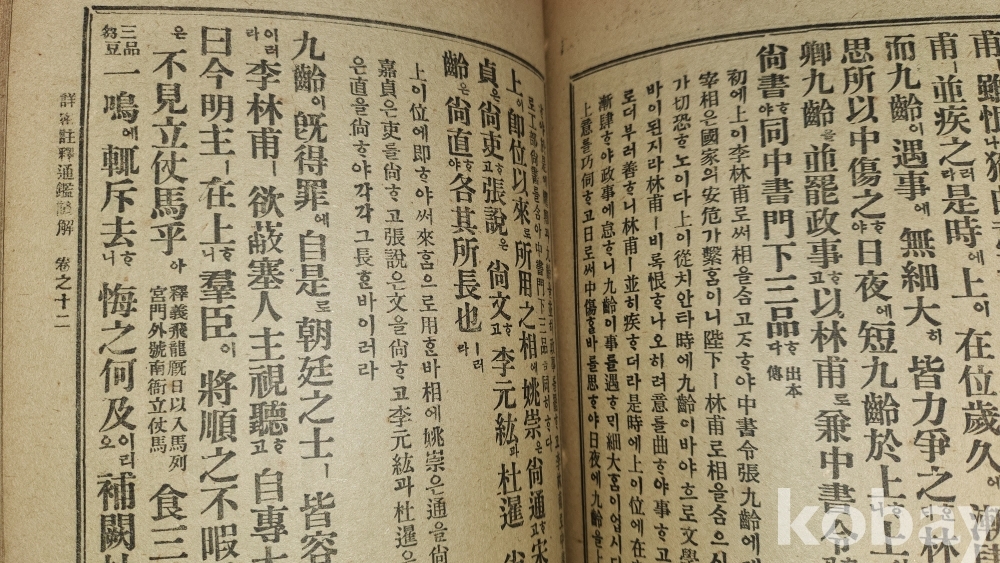 甫ㅣ並疾之라是時에上이在位歲久에
而九齡이遇事에無細大히皆力爭之林
思所以中傷之ᄒᆞ야日夜에短九齡於上ᄒᆞ니上
卿九齡을並罷政事ᄒᆞ고以林甫로兼中書令
尙書ᄒᆞ야同中書門下三品ᄒᆞ다 出本傳
初에上이李林甫로써相을合고ᄌᆞᄒᆞ야中書令張九齡에
宰相은國家의安危가繫홈이니陛下ㅣ林甫로相을合으시
가切恐ᄒᆞ노이다上이從치안타時에九齡이바야흐로文學
바이된지라林甫ㅣ비록恨ᄒᆞ나오히려意를曲ᄒᆞ야事ᄒᆞ고
로더부러善ᄒᆞ니林甫ㅣ並히疾ᄒᆞ더라是時에上이位에在
漸肆ᄒᆞ야政事에怠ᄒᆞ니九齡이事를遇ᄒᆞ미細大홈이업시
上意를巧伺ᄒᆞ고日로써中傷ᄒᆞᆯ바를思ᄒᆞ야日夜에九齡을上
上이卽位以來로所用之相에姚崇은尙通ᄒᆞ고宋
貞은尙吏ᄒᆞ고張說은尙文ᄒᆞ고李元紘과杜暹
齡은尙直ᄒᆞ야各其所長也ㅣ러라
上이位에即ᄒᆞ야써來홈으로用ᄒᆞᆫ바相에姚崇은通을尙
嘉貞은吏를尙ᄒᆞ고張說은文을尙ᄒᆞ고李元紘과杜暹은
은直을尙ᄒᆞ야각각그長ᄒᆞᆫ바이러라
九齡이旣得罪에自是로朝廷之士ㅣ皆容
이러라李林甫ㅣ欲蔽塞人主視聽ᄒᆞ고自專大
曰今明主ㅣ在上ᄒᆞ니羣臣이將順之不暇
은不見立仗馬乎아 釋義飛龍厩日以八馬列宮門外號南衙立仗馬 食三
三品芻豆一鳴에輒斥去ᄒᆞ니悔之何及이리오補闕
詳密註釋通鑑諺解 卷之十二
kobay